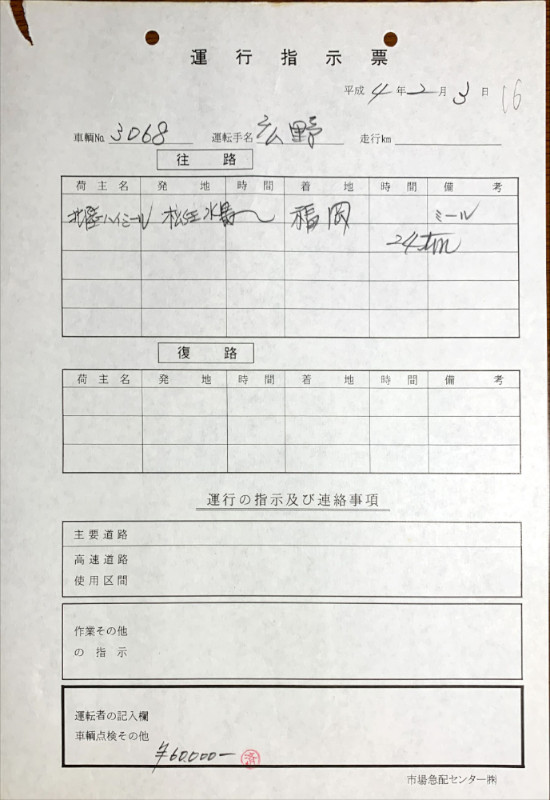 運行指示票
平成 4 年 2 月 3 日 16
車輌No. 3068 運転手名 広野 走行km
往路
荷主名 発地 時間 着地 時間 備考
ハイミール 松任 水島〜 福岡 ミール
24
復路
荷主名 発地 時間 着地 時間 備考
運行の指示及び連絡事項
主要道路
高速道路
使用区間
作業その他
の指示
運転者の記入欄
車輌点検その他
¥60,000− 済
市場急配センター㈱